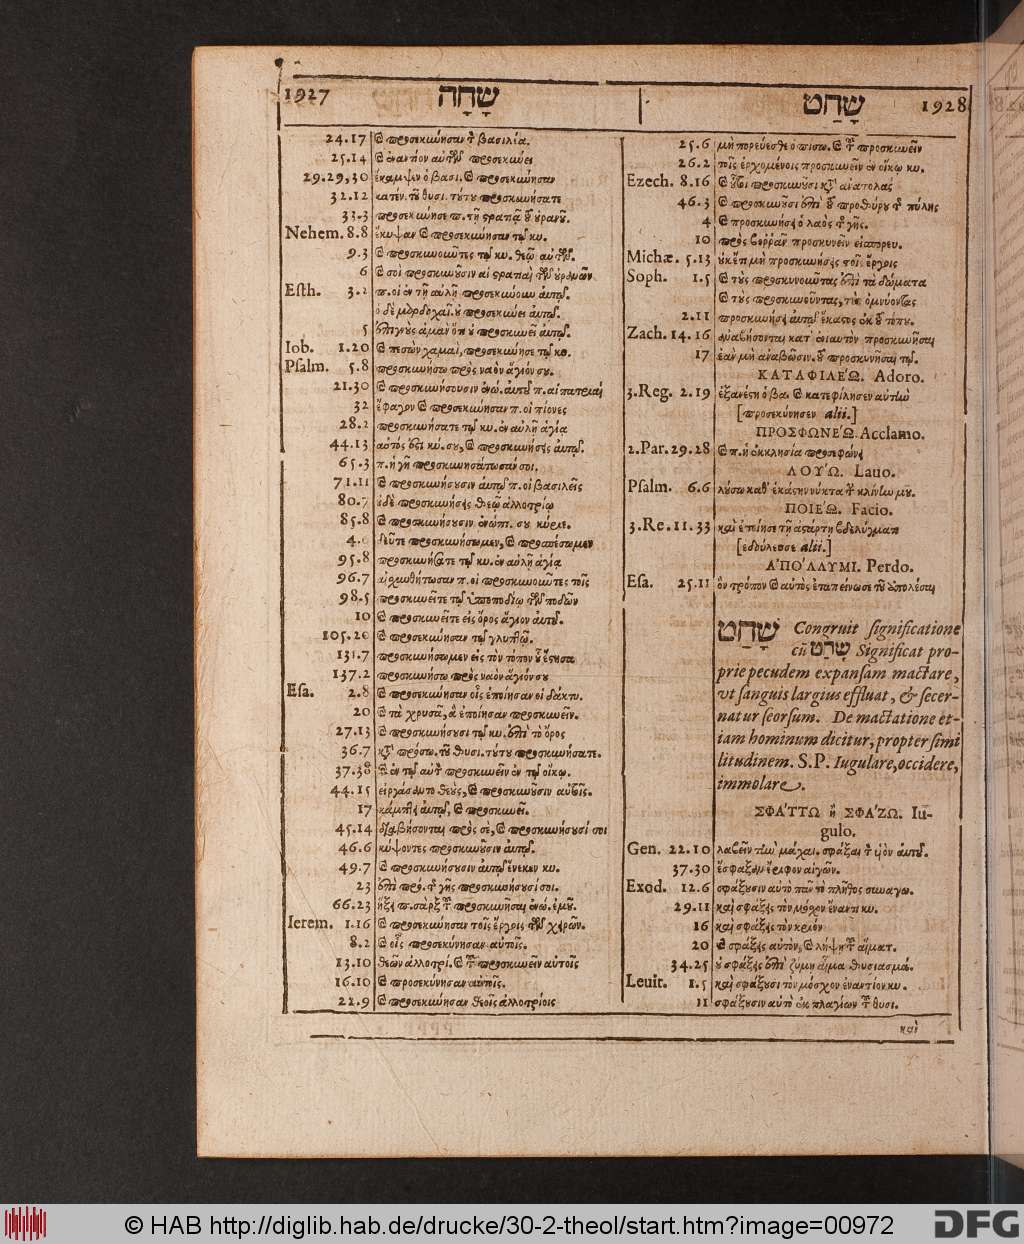 1927 שָׁחָה
24.17 ϗ προσεκύνησαν τ βασιλία.
25.14 ϗ ἐναντίον αὐτῶν προσεκύνει
29.29,30 ἔκαμψεν ὁ βασι. ϗ προσεκύνησαν
32.12 κατέν. τοῦ θυσι. τούτου προσκυνήσατε
33.3 προσεκύνησε π. τῇ στρατιᾷ τοῦ οὐρανοῦ.
Nehem. 8.8 ἔκυψαν ϗ προσεκύνησαν τῷ κυ.
9.3 ϗ προσκυνοῦντες τῷ κυ. θεῷ αὐτῶν.
6 ϗ σοὶ προσκυνοῦσιν αἱ στρατιαὶ τῶν οὐρανῶν
Esth. 3.2 π. οἱ ἐν τῇ αὐλῇ προσεκύνουν αὐτῷ.
ὁ δὲ μαρδοχαῖ. οὐ προσεκύνει αὐτῷ.
5 ἐπιγνοὺς ἀμὰν ὅτι οὐ προσκυνεῖ αὐτῷ.
Iob. 1.20 ϗ πεσὼν χαμαὶ, προσεκύνησε τῷ κυ.
Psalm. 5.8 προσκυνήσω πρὸς ναὸν ἅγιόν σου.
21.30 ϗ προσεκύνησαν
32 ἔφαγον ϗ προσεκύνησαν π. οἱ πίονες
28.2 προσκυνήσατε τῷ κυ. ἐν αὐλῇ ἁγίᾳ
44.13 αὐτός ἐστι κύ. σου, ϗ προσκυνήσεις αὐτῷ.
65.3 π. ἡ γῆ προσκυνησάτωσάν σοι.
71.11 ϗ προσκυνήσουσιν αὐτῷ π. οἱ βασιλεῖς
80.9 οὐδὲ προσκυνήσεις θεῷ ἀλλοτρίῳ
85.8 ϗ προσκυνήσουσιν ἐνώπι. σου κύριε.
4.6 δεῦτε προσκυνήσωμεν, ϗ προσπέσωμεν
95.8 προσκυνήσατε τῷ κυ. ἐν αὐλῇ ἁγίᾳ
96.7 προσκυνοῦντες τοῖς
98.5 προσκυνεῖτε τῷ ὑποποδίῳ τῶν ποδῶν
10 ϗ προσκυνεῖτε εἰς ὄρος ἅγιον αὐτοῦ.
105.20 ϗ προσεκύνησαν τῷ γλυπτῷ.
131.7 προσκυνήσωμεν εἰς τὸν τόπον οὗ ἔστησα
137.2 προσκυνήσω πρὸς ναὸν ἅγιόν σου
Esa. 2.8 ϗ προσεκύνησαν οἷς ἐποίησαν οἱ δάκτυ.
20 ϗ τὰ χρυσᾶ, ἃ ἐποίησαν προσκυνεῖν.
27.13 ϗ προσκυνήσουσι τῷ κυ. ἐπὶ τὸ ὄρος
36.7 κτ πρόσω. τοῦ θυσι. τούτου προσκυνήσατε.
37.38 ἐν τῷ αὐτ προσκυνεῖν ἐν τῷ οἴκῳ.
44.15 εἰργάσαντο θεοὺς, ϗ προσκυνοῦσιν αὐτοῖς.
17 κάμπτει αὐτῷ, ϗ προσκυνεῖ.
45.14 διαβήσονται πρὸς σὲ, ϗ προσκυνήσουσί σοι
46.6 κύψαντες προσκυνοῦσιν αὐτῷ.
49.7 ϗ προσκυνήσουσιν αὐτῷ ἕνεκεν κυ.
23 ἐπὶ πρό. τ γῆς προσκυνήσουσί σοι.
66.23 ἥξει π. σὰρξ τ προσκυνῆσαι ἐνώ. ἐμοῦ.
Ierem. 1.16 ϗ προσεκύνησαν τοῖς ἔργοις τῶν χειρῶν.
8.2 ϗ οἷς προσεκύνησαν αὐτοῖς.
13.10 θεῶν ἀλλοτρί. ϗ τ προσκυνεῖν αὐτοῖς
16.10 ϗ προσεκύνησαν αὐτοῖς.
22.9 ϗ προσεκύνησαν θεοῖς ἀλλοτρίοις
שָׁחַט 1928
25.6 μὴ πορεύεσθε ὀπίσω. ϗ τ προσκυνεῖν
26.2 τοῖς ἐρχομένοις προσκυνεῖν ἐν οἴκῳ κυ.
Ezech. 8.16 ϗ οὗτοι προσκυνοῦσι κτ ἀνατολὰς
46.3 ϗ προσκυνήσει
4 ϗ προσκυνήσει ὁ λαὸς τ γῆς.
10 πρὸς βορρᾶν προσκυνεῖν εἰσπορευ.
Michæ. 5.13 οὐκέτι μὴ προσκυνήσεις τοῖς ἔργοις
Soph. 1.5 ϗ τοὺς προσκυνοῦντας ἐπὶ τὰ δώματα
ϗ τοὺς προσκυνοῦντας, τοὺς ὀμνύοντας
2.11 προσκυνήσει αὐτῷ ἕκαστος ἐκ τοῦ τόπου.
Zach. 14.16 ἀναβήσονται κατ᾽ ἐνιαυτὸν προσκυνῆσαι
17 ἐὰν μὴ ἀναβῶσιν. τοῦ προσκυνῆσαι τῷ.
ΚΑΤΑΦΙΛΕ΄Ω. Adoro.
3.Reg. 2.19 ἐξανέστη ὁ βα. ϗ κατεφίλησεν αὐτὴν
[προσεκύνησεν alii.]
ΠΡΟΣΦΩΝΕ΄Ω. Acclamo.
2.Par. 29.28 ϗ π. ἡ ἐκκλησία προσεφώνει
ΛΟΥ΄Ω. Lauo.
Psalm. 6.6 λούσω καθ᾽ ἑκάστην νύκτα τ κλίνην μου.
ΠΟΙΕ΄Ω. Facio.
3.Re. 11.33 καὶ ἐποίησε τῇ ἀστάρτῃ βδελύγματι
[ἐδούλευσε alii.]
Α᾽ΠΟ΄ΛΛΥΜΙ. Perdo.
Esa. 25.11 ὃν τρόπον ϗ αὐτὸς ἐταπείνωσε τοῦ ἀπολέσαι
שָׁחַט Congruit significatione
cũ שָׂרַט Significat pro-
prie pecudem expansam mactare,
vt sanguis largius effluat, & secer-
natur seorsum. De mactatione et-
iam hominum dicitur, propter simi
litudinem. S.P. Iugulare, occidere,
immolare.
ΣΦΑ΄ΤΤΩ ἢ ΣΦΑ΄ΖΩ. Iu-
gulo.
Gen. 22.10 λαβεῖν τὴν μάχαι. σφάξαι τ υἱὸν αὐτοῦ.
37.30 ἔσφαξαν ἔριφον αἰγῶν.
Exod. 12.6 σφάξουσιν αὐτὸ πᾶν τὸ πλῆθος συναγω.
29.11 καὶ σφάξεις τὸν μόσχον ἔναντι κυ.
16 καὶ σφάξεις τὸν κριόν
20 ϗ σφάξεις αὐτὸν, ϗ λήψῃ τ αἵματ.
34.25 οὐ σφάξεις ἐπὶ ζύμῃ αἷμα θυσιασμά.
Leuit. 1.5 καὶ σφάξουσι τὸν μόσχον ἐναντίον κυ.
11 σφάξουσιν αὐτὸ ἐκ πλαγίων τ θυσι.
καὶ
© HAB http://diglib.hab.de/drucke/30-2-theol/start.htm?image=00972
DFG